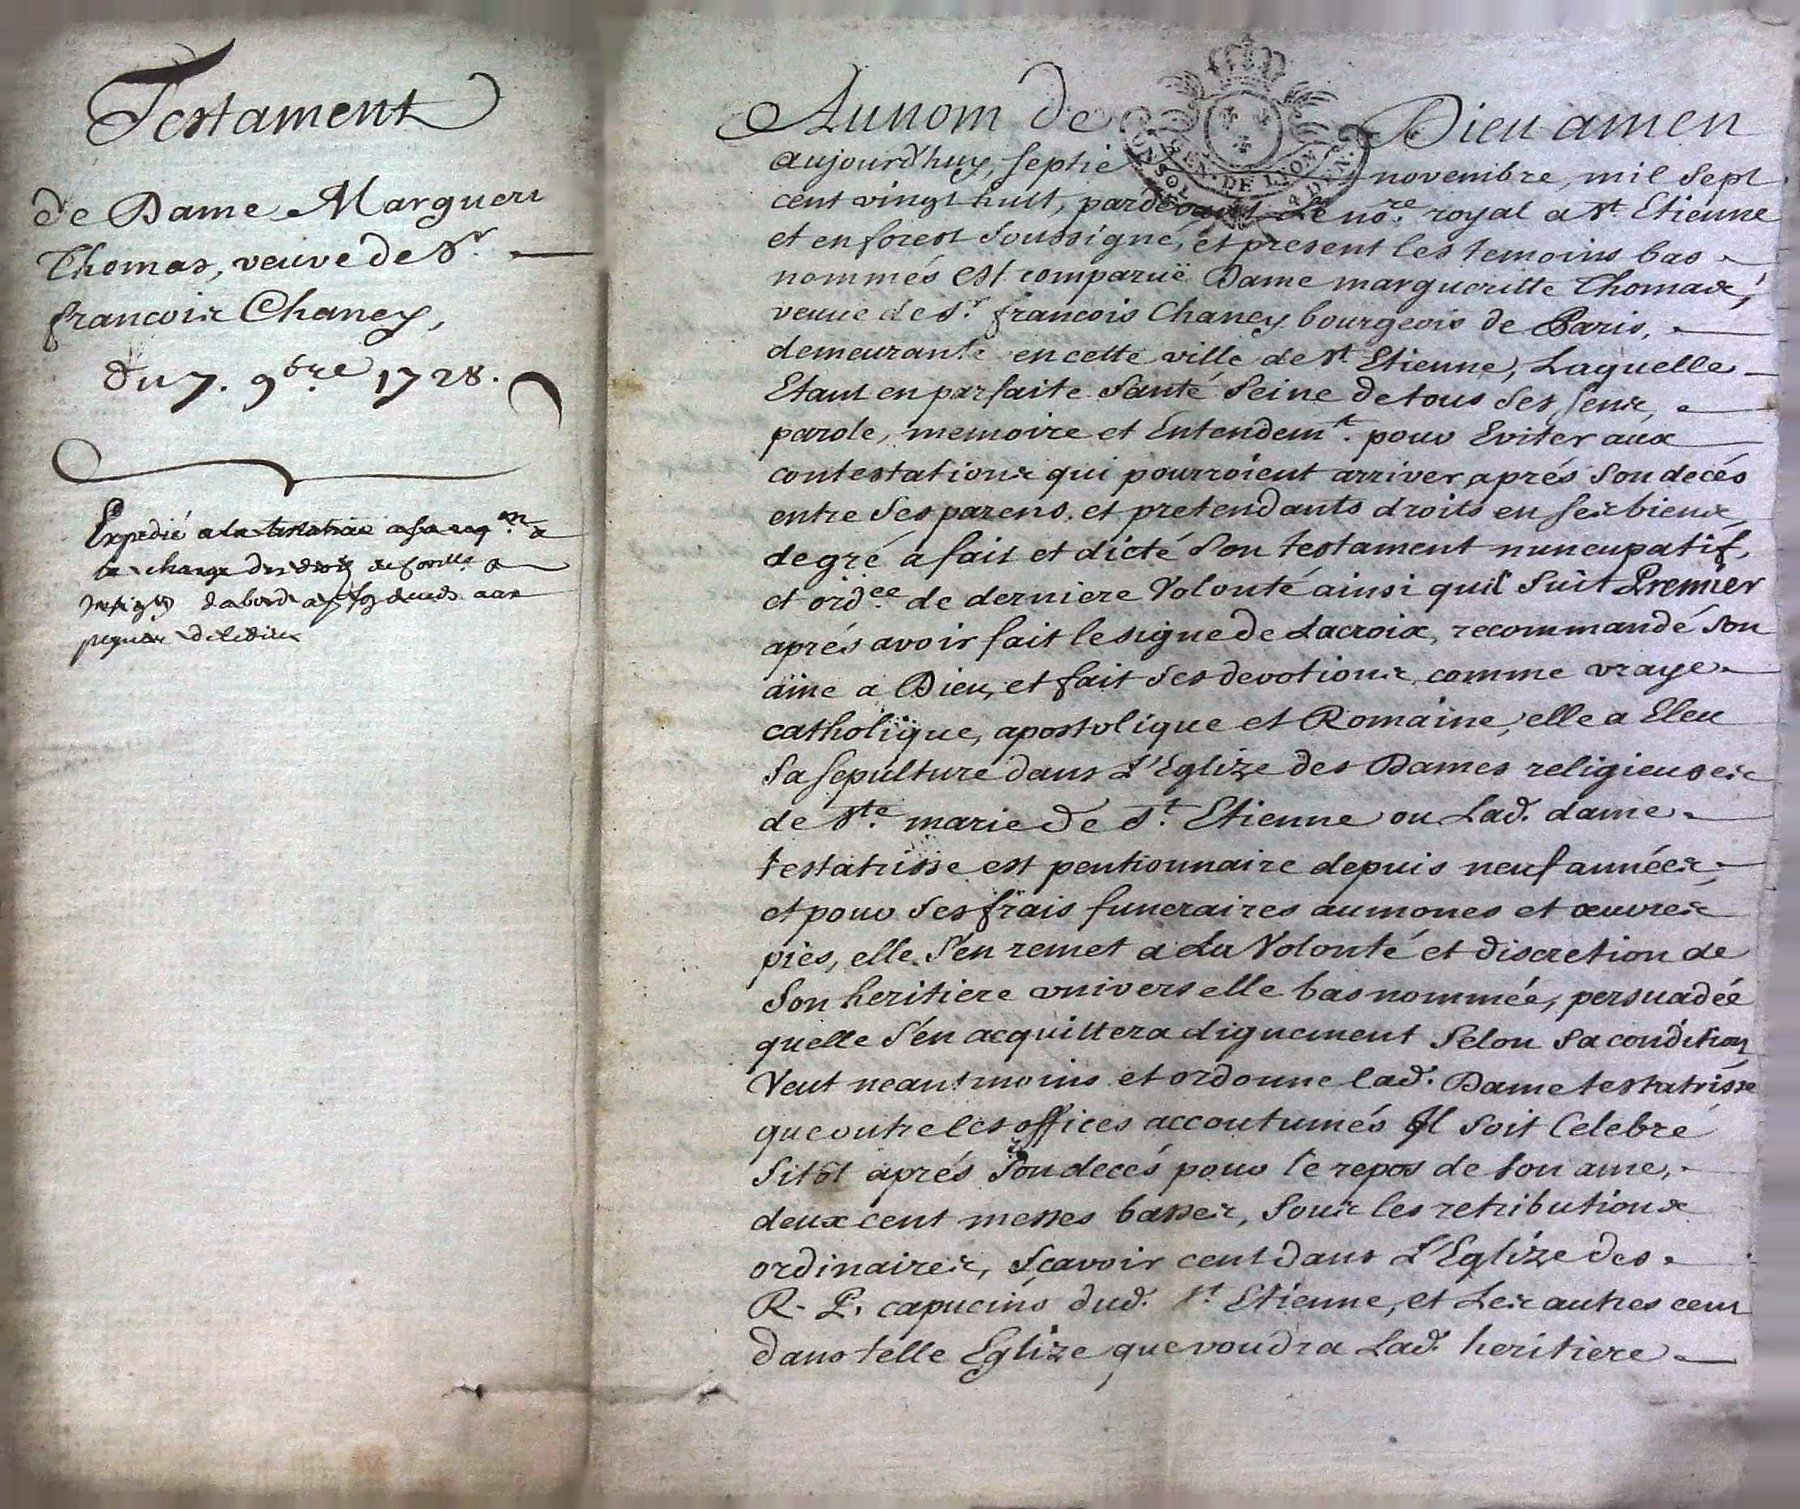 Testament
de Dame Margueri
Thomas, veuve de Sr.
francois Chaney,
du 7. 9bre 1728.
Expedié a la testatrice a sa
la charge des droits
d'abord
Au nom de Dieu amen
aujourd'huy, septie novembre, mil sept
cent vingt huit, pardevant Le nore. royal a St Etienne
et en forest Soussigné, et present les temoins bas
nommés est comparuë Dame margueritte Thomas,
veuve de Sr. francois Chaney bourgeois de Paris,
demeurante en cette ville de St Etienne, Laquelle
Etant en parfaite Santé Seine de tous Ses sens,
parole, memoire et Entendemt. pour Eviter aux
contestations qui pourroient arriver aprés Son decés
entre Ses parens, et pretendants droits en ses biens
de gré a fait et dicté Son testament nuncupatif,
et ordce de derniere Volonté ainsi quil Suit Premier
aprés avoir fait le signe de Lacroix, recommandé Son
ame a Dieu, et fait Ses devotions, comme vraye
catholique, apostolique et Romaine, elle a Eleu
Sa sepulture dans L'Eglize des Dames religieuses
de Ste. marie de St. Etienne ou Lad. dame
testatrisse est pentionnaire depuis neuf années
et pour Ses frais funeraires aumones et œuvres
pies, elle S'en remet a La Volonté et discretion de
Son heritiere universelle bas nommée, persuadée
quelle S'en acquittera dignement Selon Sa condition
Veut neantmoins et ordonne lad. Dame testatrisse
que outre les offices accoutumés Il Soit Celebré
Sitôt aprés Son decés pour le repos de Son ame,
deux cent messes basses, Sous les retributions
ordinaires, Sçavoir cent dans L'Eglize des
R. P. capucins dud. St Etienne, et Les autres cent
dans telle Eglize que voudra Lad. heritiere
GEN. DE LION